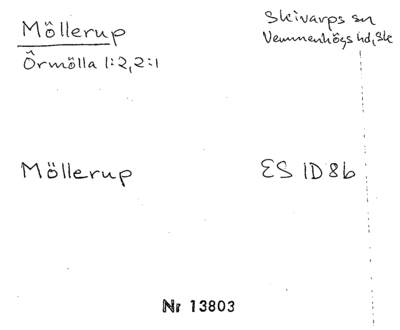 Möllerup
Skivarps sn
Vemmenhögs hd, Sk
Örmölla 1:2, 2:1
Möllerup
ES 1D8b
Nr 13803